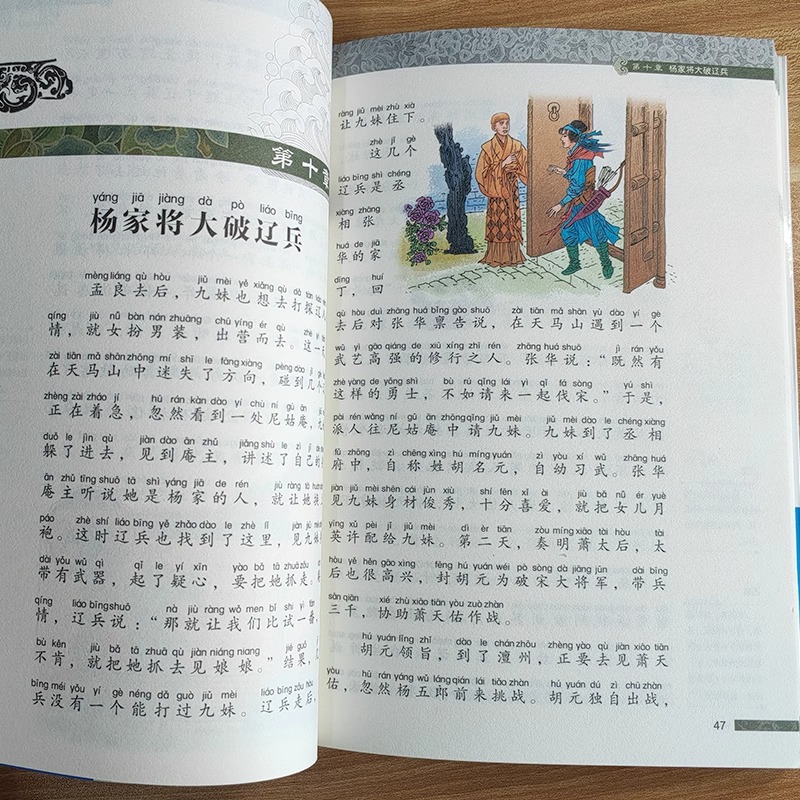 第十章
yáng jiā jiàng dà pò liáo bīng
杨家将大破辽兵
mèng liáng qù hòu jiǔ mèi yě xiǎng qù dǎ tàn
孟良去后，九妹也想去打探辽
qíng jiù nǚ bàn nán zhuāng chū yíng ér qù zhè yì
情，就女扮男装，出营而去。这一
zài tiān mǎ shān zhōng mí shī le fāng xiàng pèng dào jǐ
在天马山中迷失了方向，碰到几个
zhèng zài zháo jí hū rán kàn dào yí chù ní gū ān
正在着急，忽然看到一处尼姑庵，
duǒ le jìn qù jiàn dào ān zhǔ jiǎng shù le zì jǐ
躲了进去，见到庵主，讲述了自己的
ān zhǔ tīng shuō tā shì yáng jiā de rén jiù ràng tā
庵主听说她是杨家的人，就让她换
páo zhè shí liáo bīng yě zhǎo dào le zhè lǐ jiàn jiǔ mèi
袍。这时辽兵也找到了这里，见九妹
dài yǒu wǔ qì qǐ le yí xīn yào bǎ tā zhuā zǒu
带有武器，起了疑心，要把她抓走。
qíng liáo bīng shuō nà jiù ràng wǒ men bǐ shì yì fān
情，辽兵说：“那就让我们比试一番。
bù kěn jiù bǎ tā zhuā qù jiàn niáng niang jié guǒ
不肯，就把她抓去见娘娘。”结果，
bīng méi yǒu yí gè néng dǎ guò jiǔ mèi liáo bīng zǒu hòu
兵没有一个能打过九妹。辽兵走后，
第十章 杨家将大破辽兵
ràng jiǔ mèi zhù xià
让九妹住下。
zhè jǐ gè
这几个
liáo bīng shì chéng
辽兵是丞
xiàng zhāng
相张
huá de jiā
华的家
dīng huí
丁，回
qù hòu duì zhāng huá bǐng gào shuō zài tiān mǎ shān yù dào yí gè
去后对张华禀告说，在天马山遇到一个
wǔ yì gāo qiáng de xiū xíng zhī rén zhāng huá shuō jì rán yǒu
武艺高强的修行之人。张华说：“既然有
zhè yàng de yǒng shì bù rú qǐng lái yì qǐ fá sòng yú shì
这样的勇士，不如请来一起伐宋。”于是，
pài rén wǎng ní gū ān zhōng qǐng jiǔ mèi jiǔ mèi dào le chéng xiàng
派人往尼姑庵中请九妹。九妹到了丞相
fǔ zhōng zì chēng xìng hú míng yuán zì yòu xí wǔ zhāng huá
府中，自称姓胡名元，自幼习武。张华
jiàn jiǔ mèi shēn cái jùn xiù shí fēn xǐ ài jiù bǎ nǚ ér yuè
见九妹身材俊秀，十分喜爱，就把女儿月
yīng xǔ pèi jǐ jiǔ mèi dì èr tiān zòu míng xiāo tài hòu tài
英许配给九妹。第二天，奏明萧太后，太
hòu yě hěn gāo xìng fēng hú yuán wéi pò sòng dà jiāng jūn dài bīng
后也很高兴，封胡元为破宋大将军，带兵
sān qiān xié zhù xiāo tiān yòu zuò zhàn
三千，协助萧天佑作战。
hú yuán lǐng zhǐ dào le chán zhōu zhèng yào qù jiàn xiāo tiān
胡元领旨，到了澶州，正要去见萧天
yòu hū rán yáng wǔ láng qián lái tiǎo zhàn hú yuán dú zì chū zhàn
佑，忽然杨五郎前来挑战。胡元独自出战，
47